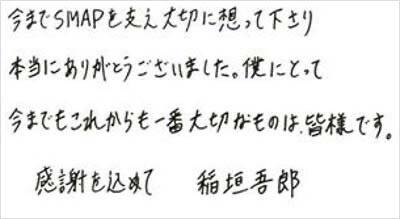 今までSMAPを支え大切に想って下さり
本当にありがとうございました。僕にとって
今までもこれからも一番大切なものは、皆様です。
感謝を込めて 稲垣吾郎